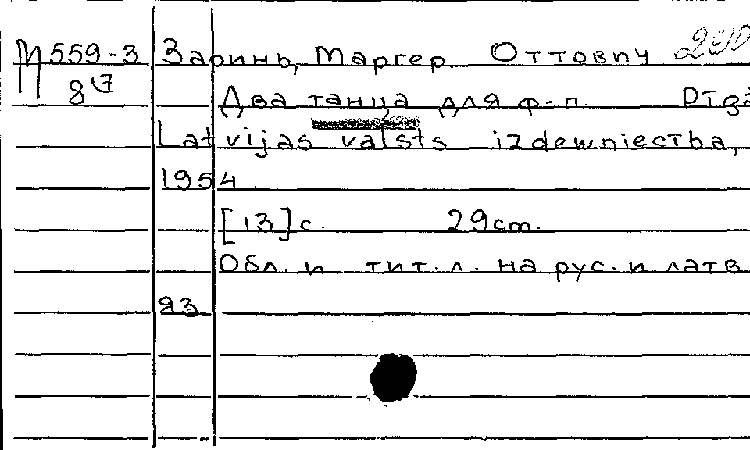 М559-3 Заринь, Маргер Оттович
87
Два танца для ф-п. Рīgā
Latvijas valsts izdewniecība,
1954
[13] с. 29 cm.
Обл. и тит. л. на рус. и латв
яз